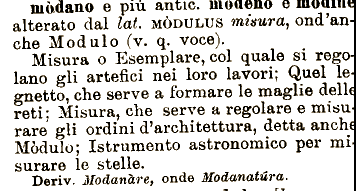 mòdano e più antic. modeno e modine
alterato dal lat. MÒDULUS misura, ond'an-
che Modulo (v. q. voce).
Misura o Esemplare, col quale si rego-
lano gli artefici nei loro lavori; Quel le-
gnetto, che serve a formare le maglie delle
reti; Misura, che serve a regolare e misu-
rare gli ordini d'architettura, detta anche
Mòdulo; Istrumento astronomico per mi-
surare le stelle.
Deriv. Modanàre, onde Modanatúra.